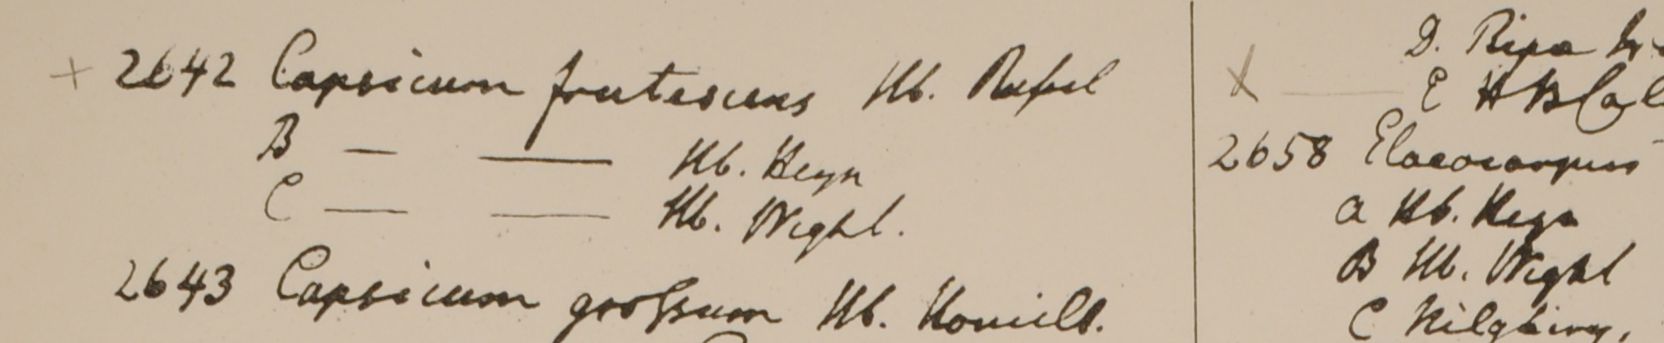 + 2642 Capsicum frutescens Hb. Russel
B — — Hb. Heyn
C — — Hb. Wight.
2643 Capsicum grossum Hb. Hamilt.
D. Ripa
E HBCal
2658 Elaeocarpus
a Hb. Heyn
B Hb. Wight
C Nilghiry,